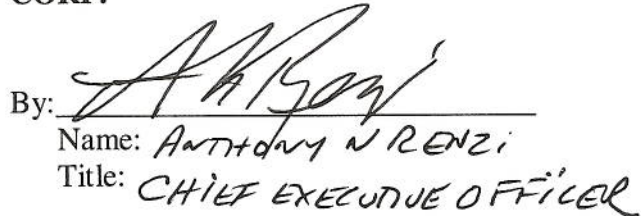 By: 
Name: ANTHONY N RENZI
Title: CHIEF EXECUTIVE OFFICER